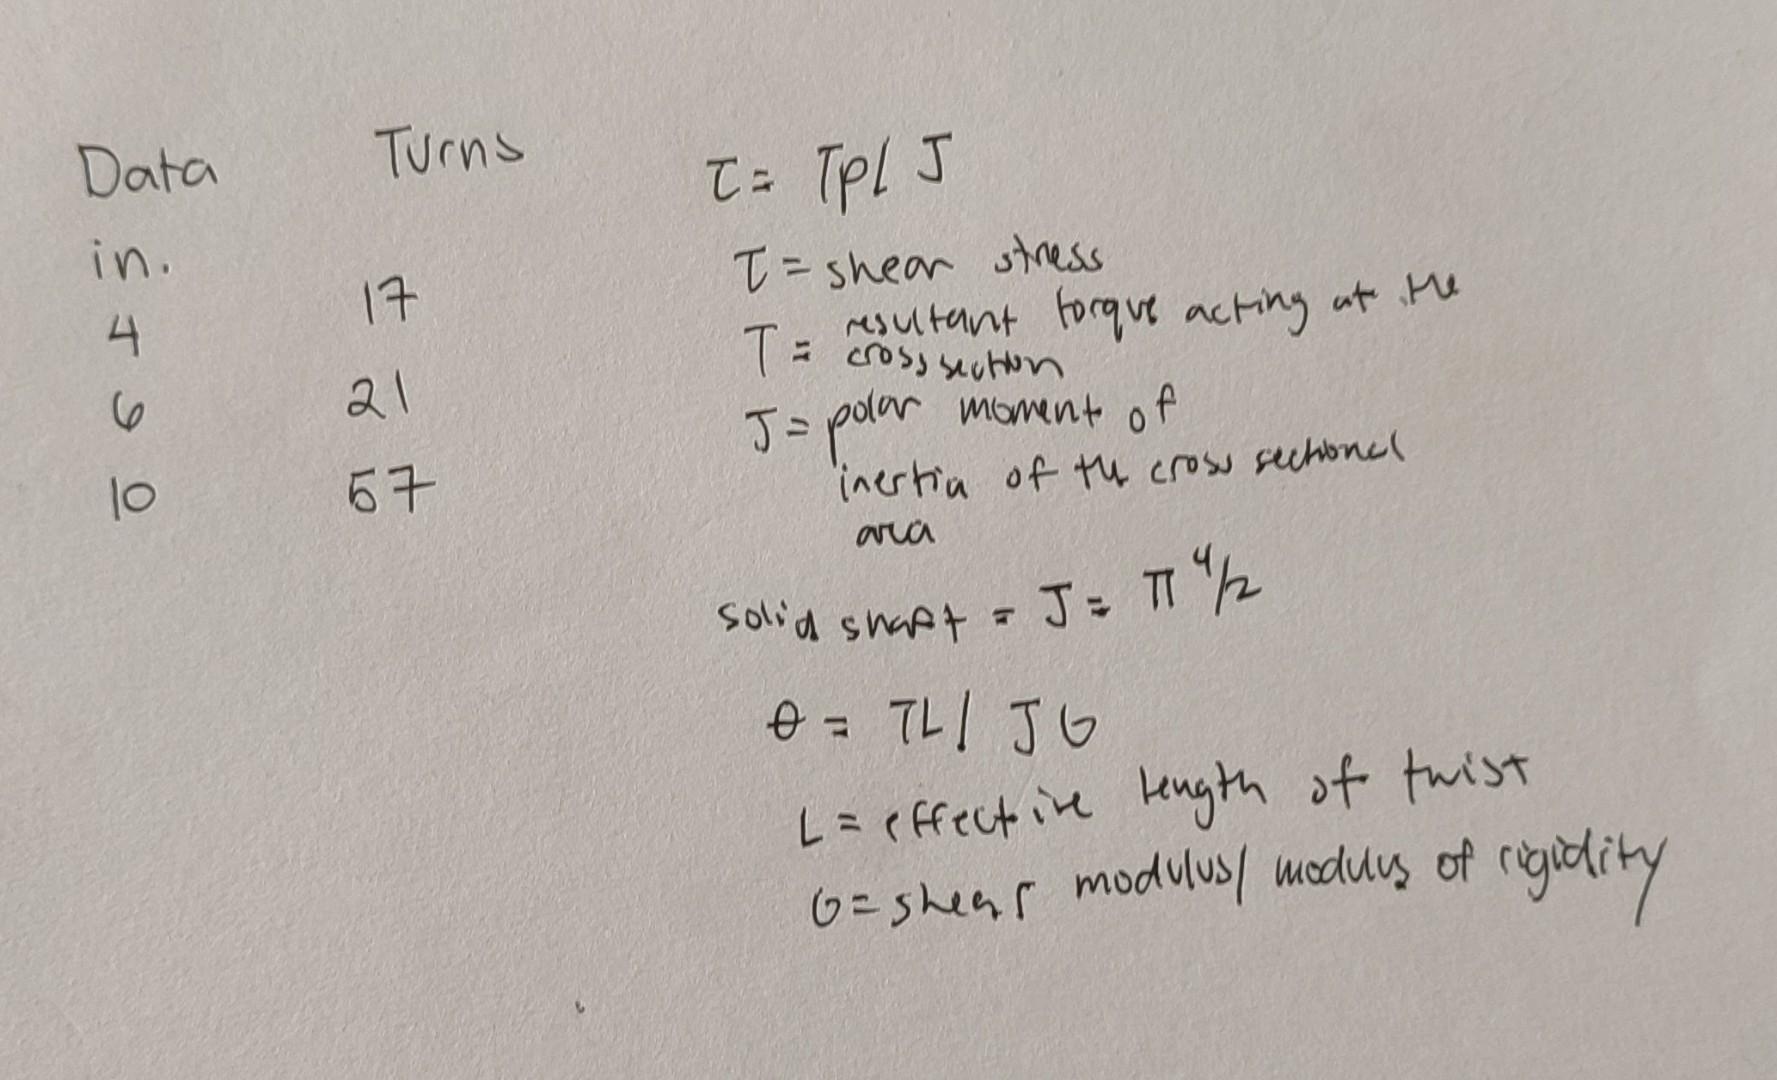 Data Turns
in.
4 17
6 21
10 57
τ = Tρ/ J
τ = shear stress
T = resultant torque acting at the
cross section
J = polar moment of
inertia of the cross sectional
area
solid shaft = J = π ⁴/2
θ = TL/ JG
L = effective length of twist
G = shear modulus/ modulus of rigidity